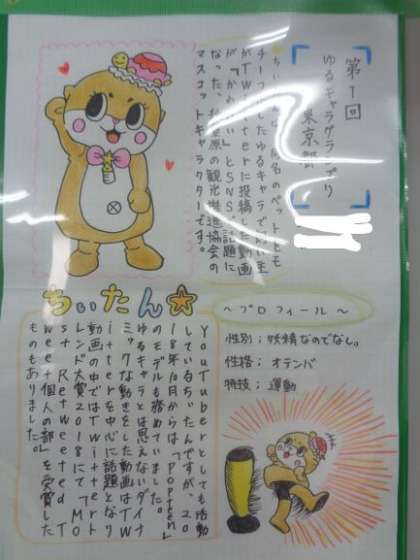 第1回
ゆるキャラグランプリ
東京都
ちぃたん
チーフにしたゆるキャラで飼い主
がTwitterに投稿した動画
が「かわいい」とSNSで話題に
なった、秋葉原の観光推進協会の
マスコットキャラクターです。
ちぃたん☆
YouTuberとしても活動
しているちぃたんですが、20
18年10月からは「Popteen」
のモデルも務めていました。
ゆるキャラとは思えないダイナ
ミックな動きをした動画はTw
itterを中心に話題となり
動画の中ではTwitterト
レンド大賞2018にて「Mo
st Retweeted T
weet個人の部」を受賞した
ものもありました。
~プロフィール~
性別;妖精なのでなし。
性格;オテンバ
特技;運動